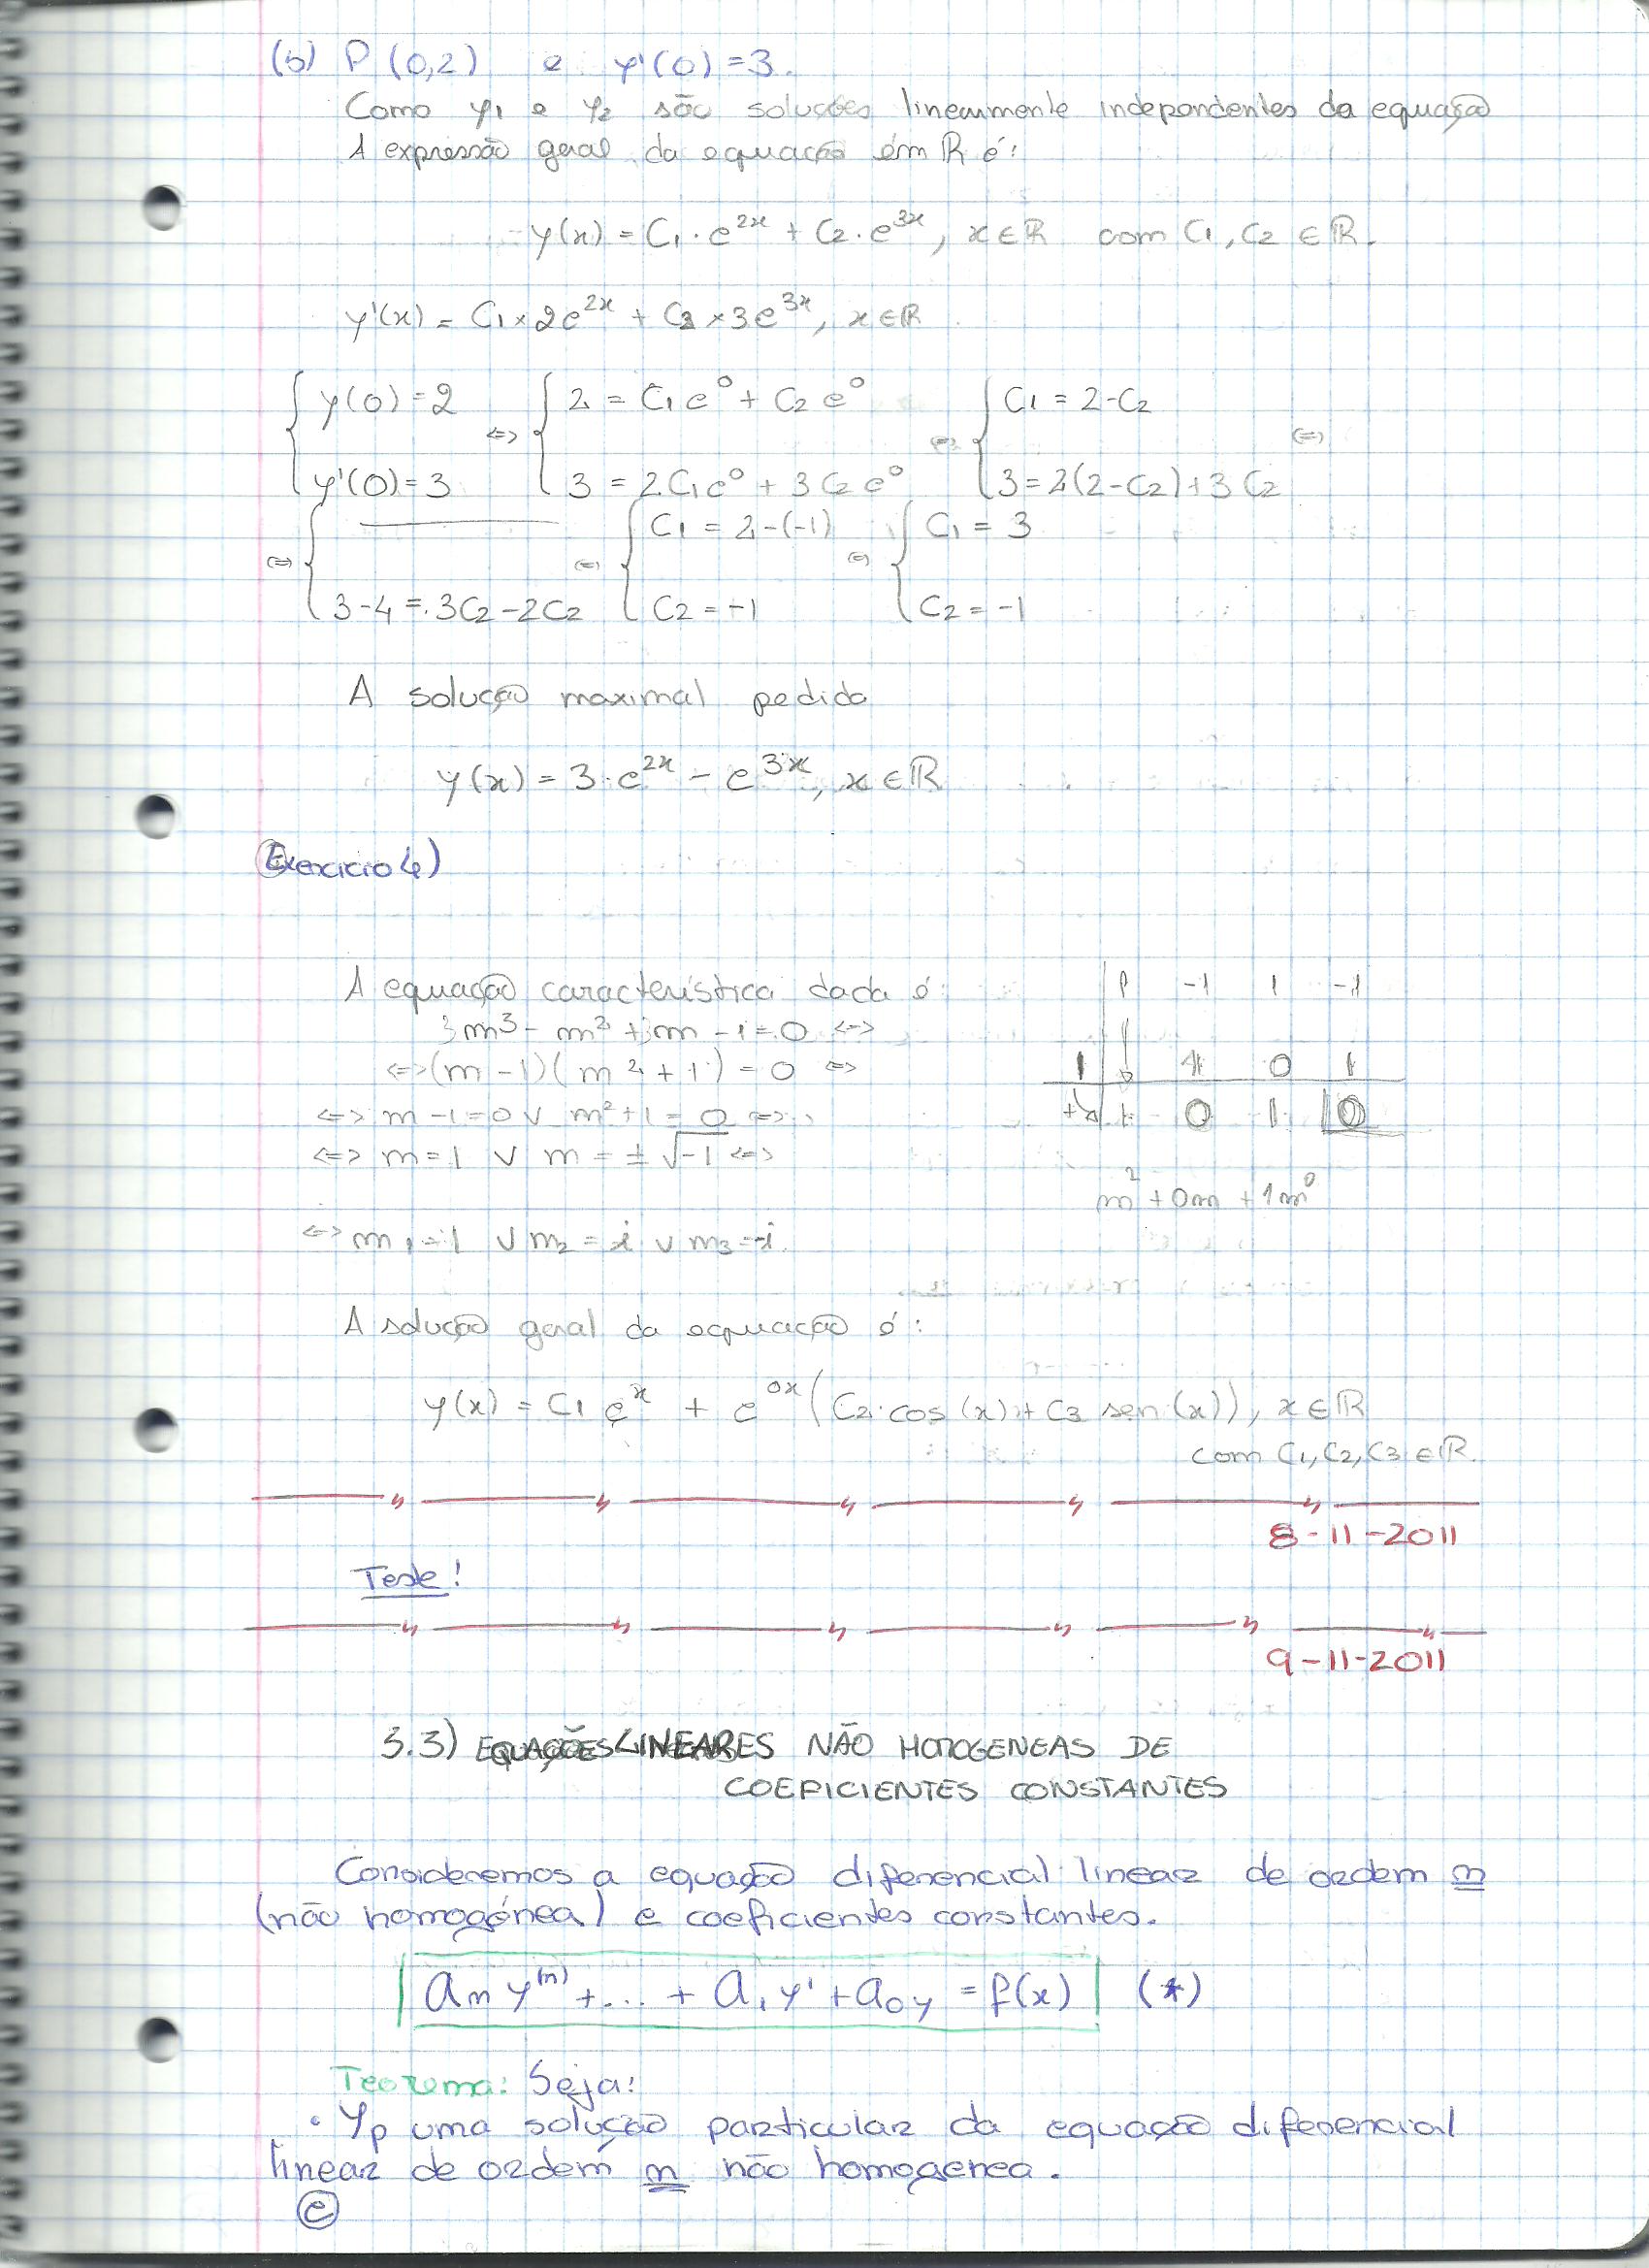 (b) P(0,2) e y'(0)=3.
Como y1 e y2 são soluções linearmente independentes da equação
A expressão geral da equação em ℝ é:
y(x) = C1·e^{2x} + C2·e^{3x}, x∈ℝ com C1, C2 ∈ ℝ.
y'(x) = C1×2e^{2x} + C2×3e^{3x}, x∈ℝ
{ y(0)=2 <=> { 2 = C1e^0 + C2e^0 <=> { C1 = 2-C2 <=>
y'(0)=3 3 = 2C1e^0 + 3C2e^0 3=2(2-C2)+3C2
<=> { ——— <=> { C1 = 2-(-1) <=> { C1 = 3
3-4 = 3C2-2C2 C2 = -1 C2 = -1
A solução maximal pedida
y(x) = 3·e^{2x} - e^{3x}, x∈ℝ
Exercicio 4)
A equação característica dada é:
m^3 - m^2 + m - 1 = 0 <=>
<=> (m-1)(m^2+1) = 0 <=>
<=> m-1=0 ∨ m^2+1=0 <=>
<=> m=1 ∨ m = ±√-1 <=>
<=> m1=1 ∨ m2 = i ∨ m3=-i.
1 -1 1 -1
1 1 0 1
1 0 1 0
m^2 + 0m + 1m^0
A solução geral da equação é:
y(x) = C1 e^x + e^{0x}(C2·cos(x) + C3 sen(x)), x∈ℝ
com C1, C2, C3 ∈ ℝ.
8-11-2011
Teste!
9-11-2011
3.3) EQUAÇÕES LINEARES NÃO HOMOGENEAS DE
COEFICIENTES CONSTANTES
Consideremos a equação diferencial linear de ordem n
(não homogénea) e coeficientes constantes.
an y^(n) + ... + a1y' + a0y = f(x) (*)
Teorema: Seja:
• yp uma solução particular da equação diferencial
linear de ordem n não homogenea.
e